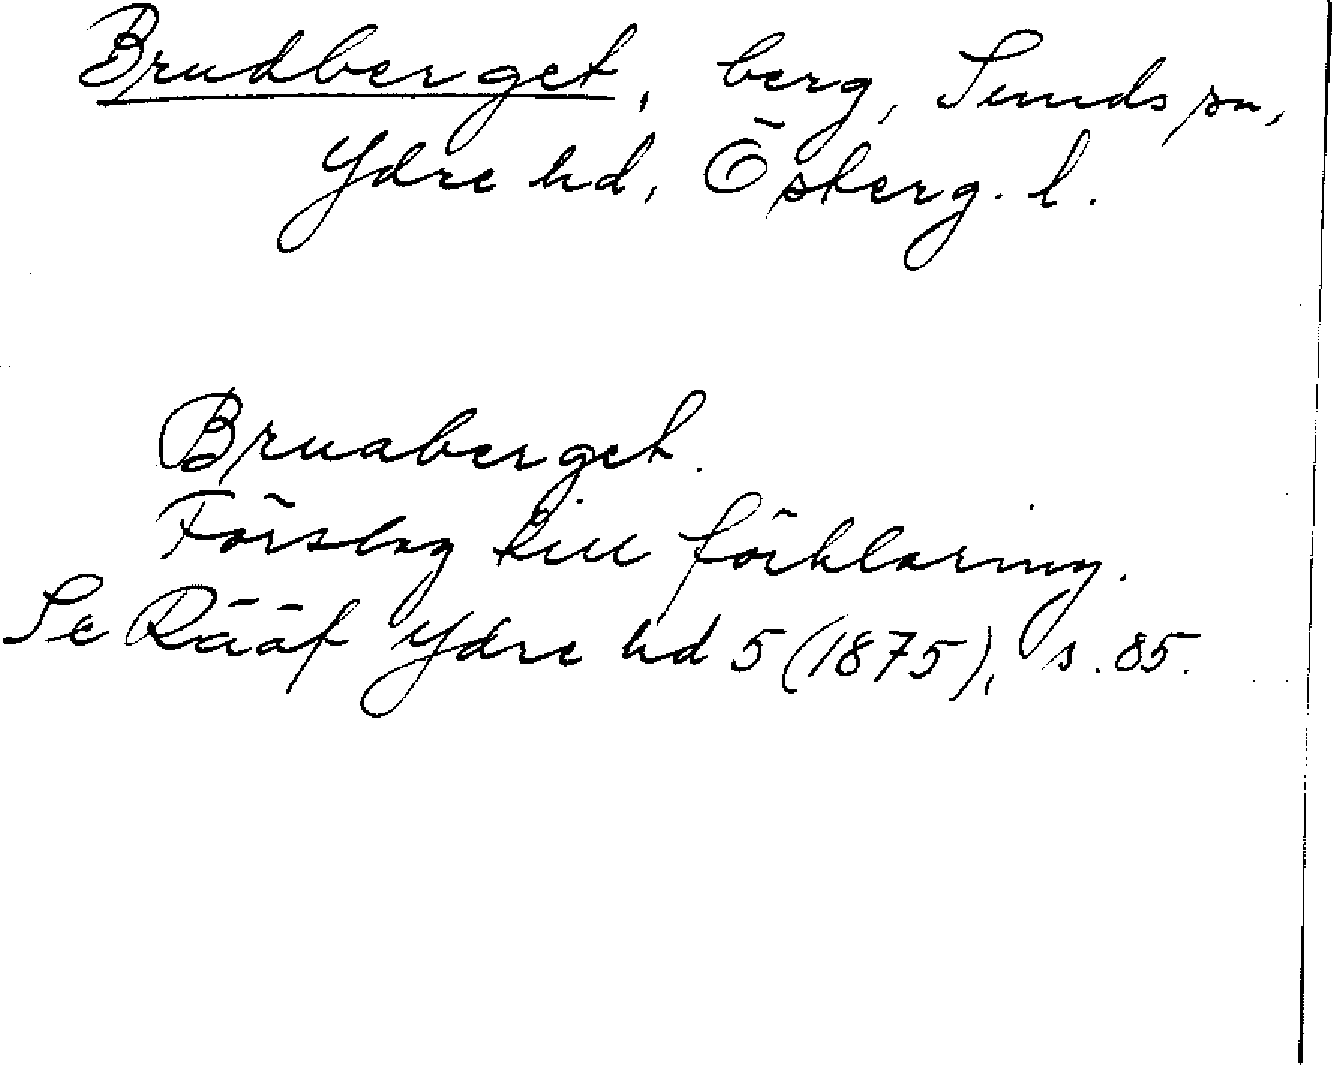 Brudberget, berg, Sunds sn,
Ydre hd, Österg. l.
Bruaberget.
Förslag till förklaring.
Se Rääf Ydre hd 5 (1875), s. 85.